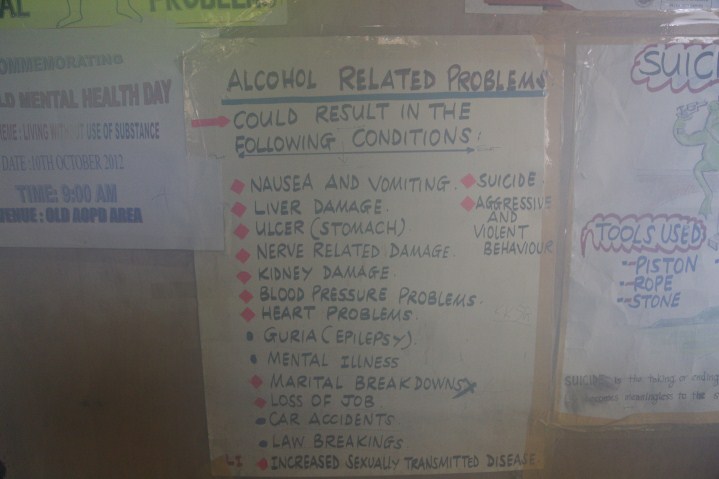 AL
PROBLEMS
OMMEMORATING
LD MENTAL HEALTH DAY
EME : LIVING WITHOUT USE OF SUBSTANCE
DATE :10TH OCTOBER 2012
TIME: 9:00 AM
VENUE : OLD AOPD AREA
ALCOHOL RELATED PROBLEMS
COULD RESULT IN THE
FOLLOWING CONDITIONS:
NAUSEA AND VOMITING.
LIVER DAMAGE.
ULCER (STOMACH)
NERVE RELATED DAMAGE
KIDNEY DAMAGE.
BLOOD PRESSURE PROBLEMS.
HEART PROBLEMS.
GURIA (EPILEPSY)
MENTAL ILLNESS
MARITAL BREAKDOWNS
LOSS OF JOB
CAR ACCIDENTS
LAW BREAKINGS
LI INCREASED SEXUALLY TRANSMITTED DISEASE
SUICIDE
AGGRESSIVE
AND
VIOLENT
BEHAVIOUR
SUICI
TOOLS USED
-PISTON
-ROPE
-STONE
SUICIDE is the taking or ending
to the s